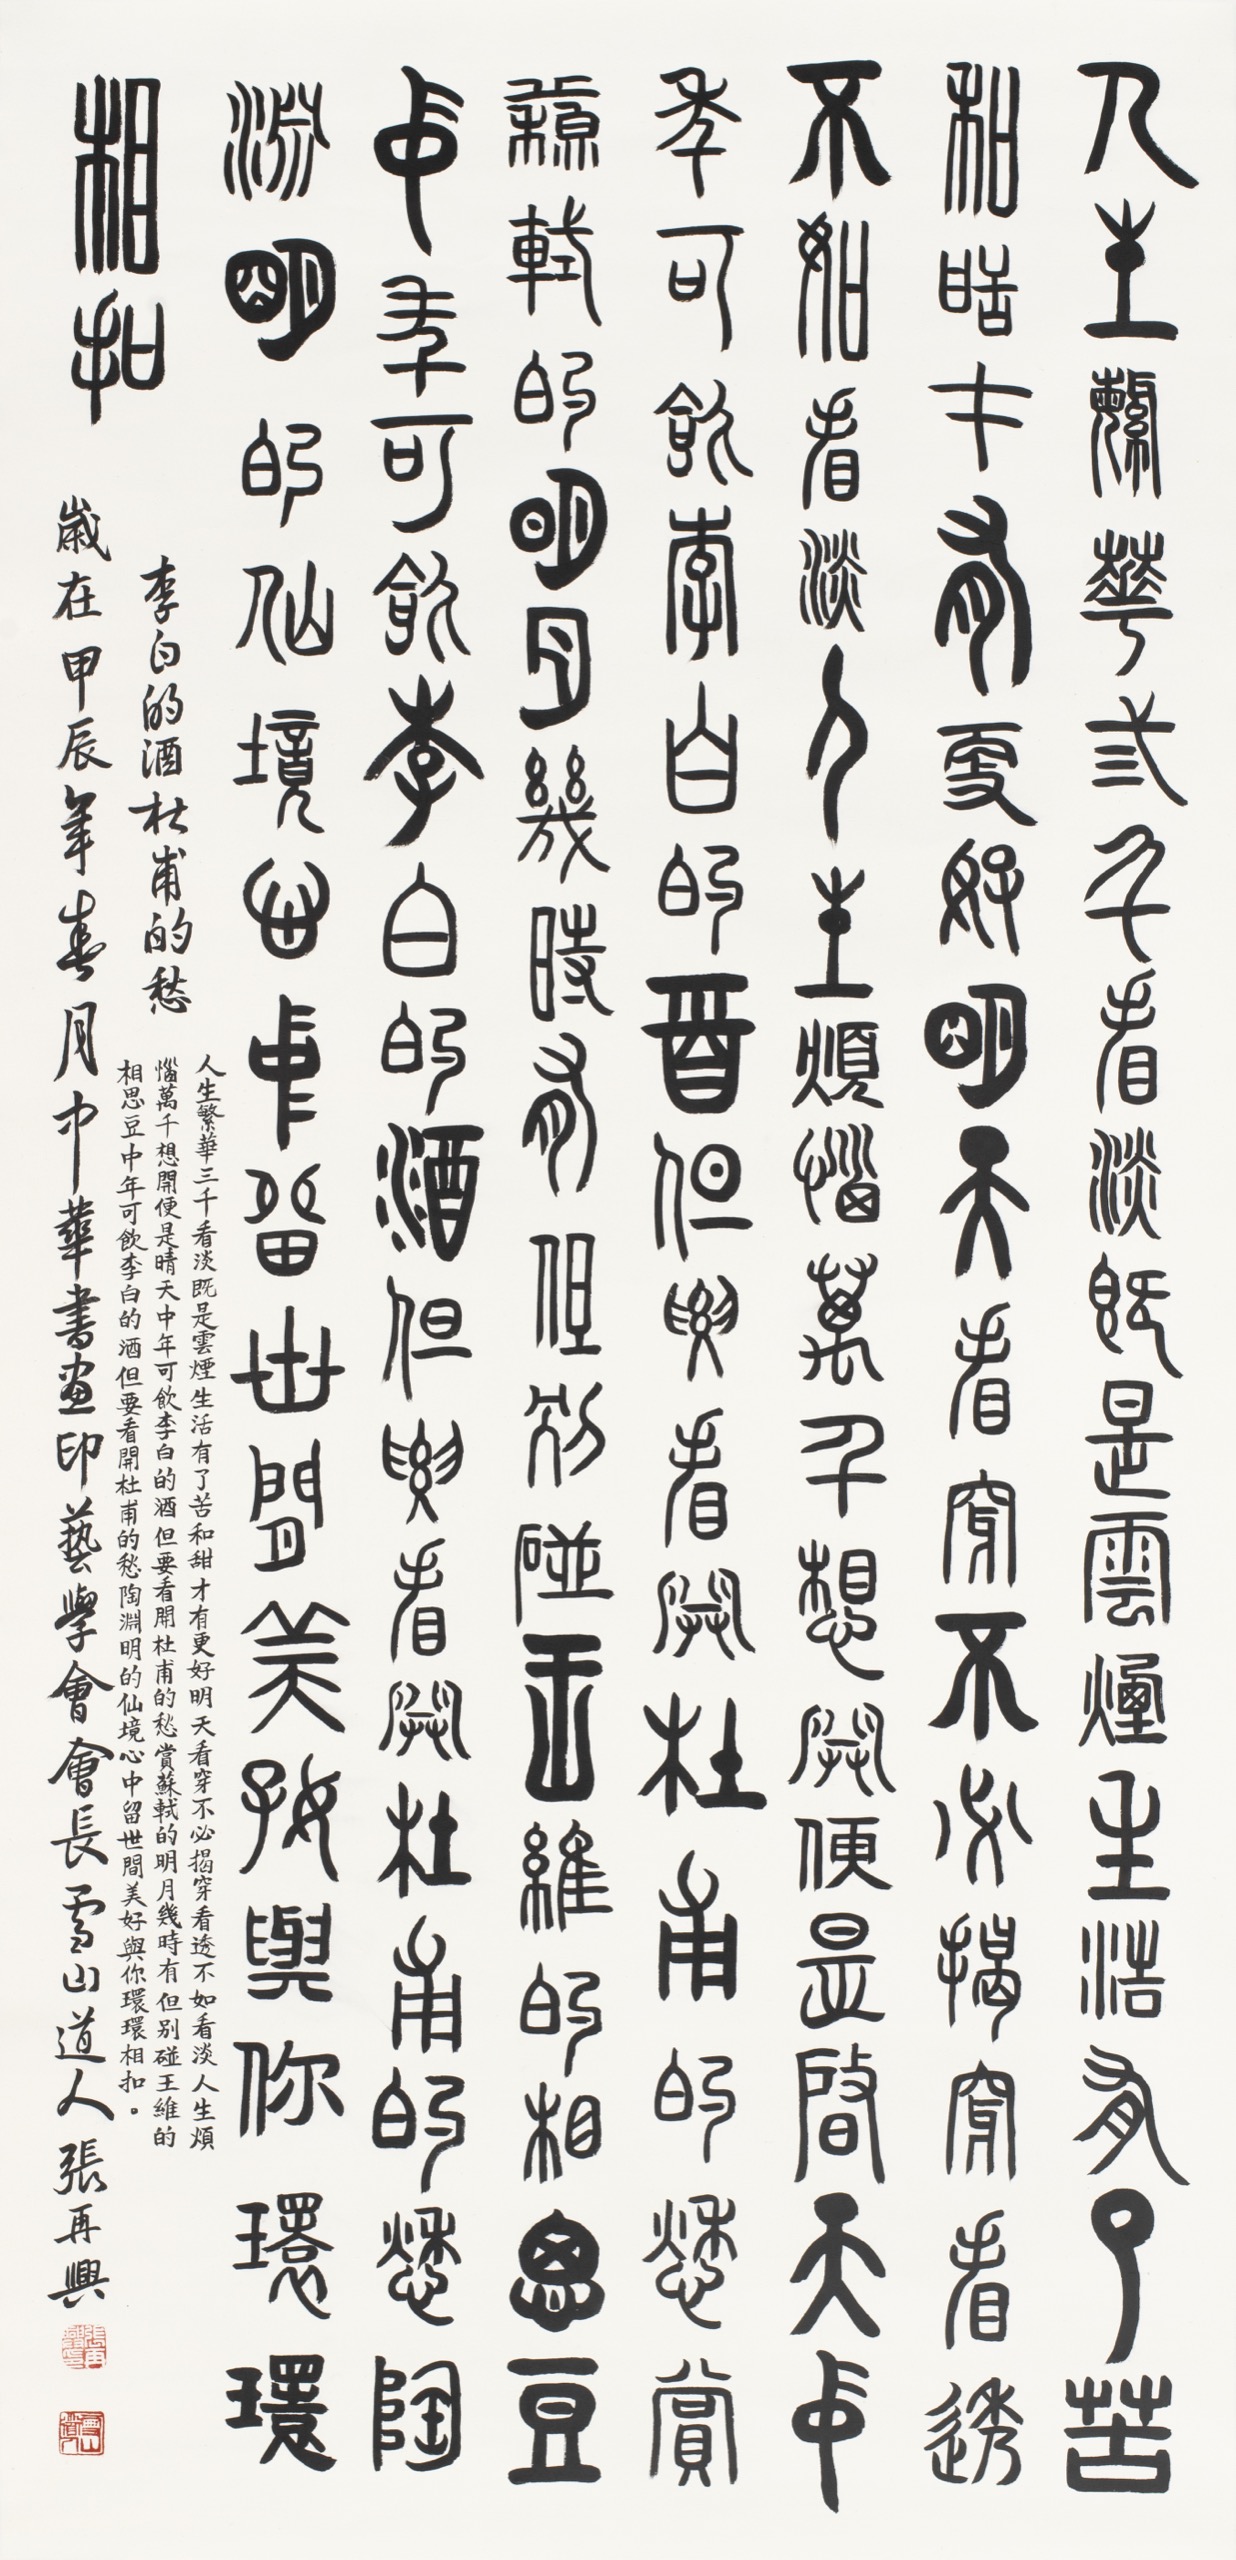 人生繁華三千看淡既是雲煙生活有了苦
和甜才有更好明天看穿不必揭穿看透
不如看淡人生煩惱萬千想開便是晴天中
年可飲李白的酒但要看開杜甫的愁賞
蘇軾的明月幾時有但别碰王維的相思豆
中年可飲李白的酒但要看開杜甫的愁陶
淵明的仙境心中留世間美好與你環環
相扣
李白的酒杜甫的愁
人生繁華三千看淡既是雲煙生活有了苦和甜才有更好明天看穿不必揭穿看透不如看淡人生煩
惱萬千想開便是晴天中年可飲李白的酒但要看開杜甫的愁賞蘇軾的明月幾時有但别碰王維的
相思豆中年可飲李白的酒但要看開杜甫的愁陶淵明的仙境心中留世間美好與你環環相扣。
歲在甲辰年春月中華書畫印藝學會會長雪山道人張再興